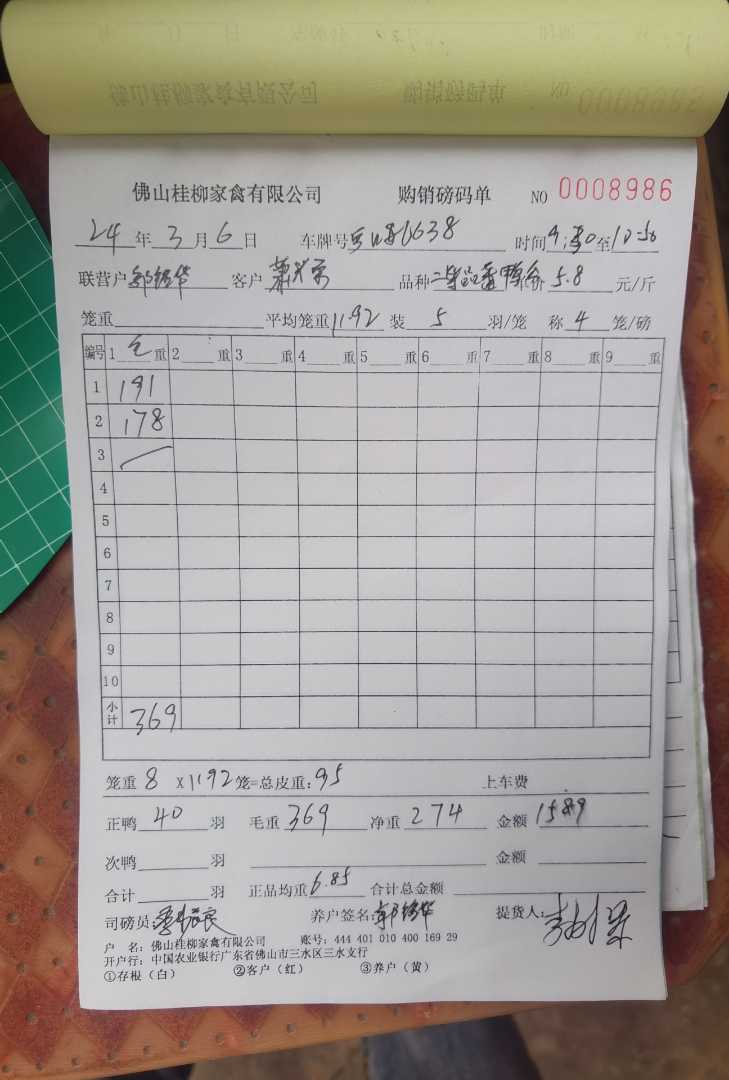 佛山桂柳家禽有限公司 购销磅码单 NO 0008986
24年3月6日 车牌号 6638 时间 至
联营户 客户 品种 5.8 元/斤
笼重 平均笼重 11.92 装 5 羽/笼 称 4 笼/磅
编号 1 重 2 重 3 重 4 重 5 重 6 重 7 重 8 重 9 重
1 191
2 178
3
4
5
6
7
8
9
10
小计 369
笼重 8 X 11.92 笼=总皮重: 95 上车费
正鸭 40 羽 毛重 369 净重 274 金额 1589
次鸭 羽 金额
合计 羽 正品均重 6.85 合计总金额
司磅员: 养户签名: 提货人:
户 名: 佛山桂柳家禽有限公司 账号: 444 401 010 400 169 29
开户行: 中国农业银行广东省佛山市三水区三水支行
①存根（白） ②客户（红） ③养户（黄）